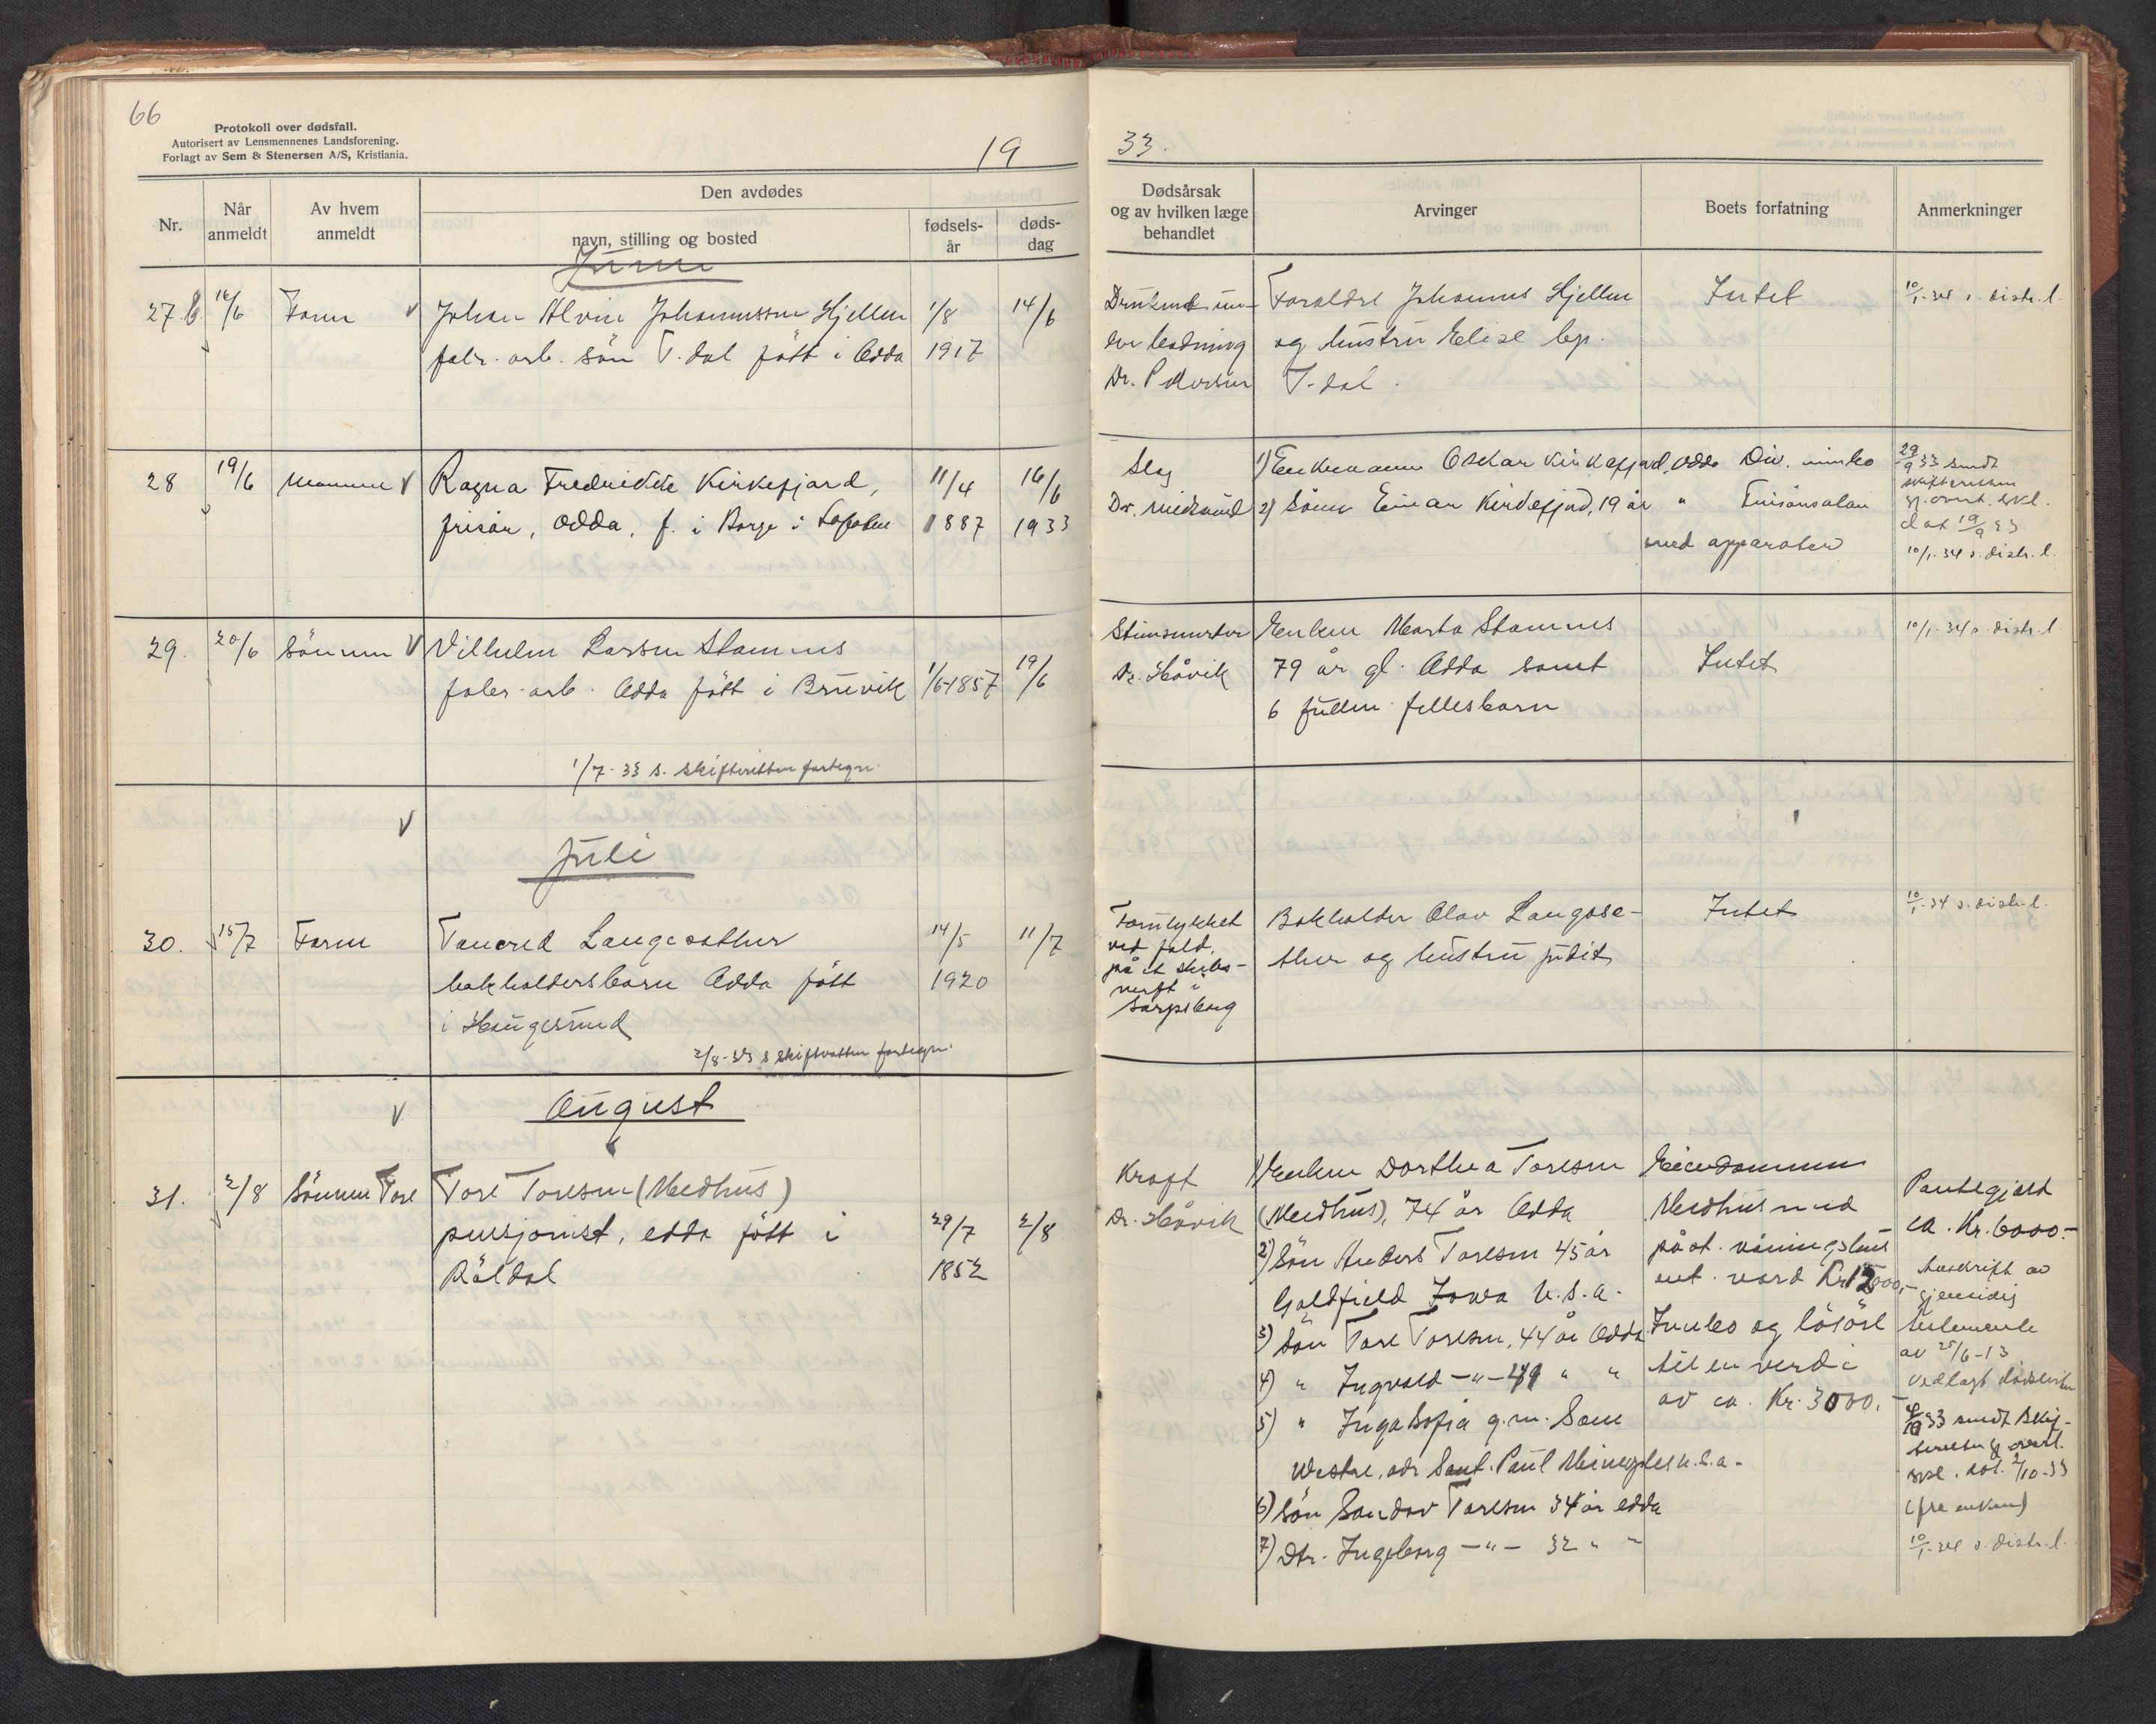 66
Protokoll over dødsfall.
Autorisert av Lensmennenes Landsforening.
Forlagt av Sem & Stenersen A/S, Kristiania.
19
33.
Nr.
Når anmeldt
Av hvem anmeldt
Den avdødes
navn, stilling og bosted
fødselsår
dødsdag
Dødsårsak og av hvilken læge behandlet
Arvinger
Boets forfatning
Anmerkninger
Juni
27. 16/6 Faren Johan Alvin Johannessen Hjellen 1/8 14/6
fabr. arb. sön T.dal fött i Odda 1917
under badning
Dr. Pedersen
Foreldre Johannes Hjellen
og hustru Elise bp.
T.dal.
Intet
10/1-34 s. distr.l.
28 19/6 Mannen Ragna Fredrikke Kirkefjord, 11/4 16/6
frisör, Odda, f. i Borge i Lofoten 1887 1933
Slag
1) Enkemann Oskar Kirkefjord, Odda
2) Sönn Einar Kirkefjord, 19 år "
Div. innbo
Frisörsalon
med apparater
29/9 33 sendt
skifteretten
dat 19/9 33
10/1-34 s. distr.l.
29. 20/6 Sönnen Vilhelm Larsen Stamnes
fabr. arb. Odda fött i Bruvik 1/6-1857 19/6
1/7-33 s. skifteretten fortegn.
Dr. Håvik
Enken Marta Stamnes
79 år gl. Odda samt
6 fullm. fellesbarn
Intet
10/1-34 s. distr.l.
Juli
30. 15/7 Faren Tancred Langesæther 14/5 11/7
bokholdersbarn Odda fött 1920
i Haugesund
2/8-33 s skifteretten fortegn.
Forulykket
ved fald
på et skibs-
verft i
Sarpsborg
Bokholder Olav Langesæ-
ther og hustru Judit
Intet
10/1-34 s. distr.l.
August
31. 2/8 Sönnen Tore Tore Toresen (Medhus)
pensjonist, Odda fött i 29/7 2/8
Röldal 1852
Kraft
Dr. Håvik
1) Enken Dorthea Toresen
(Medhus), 74 år Odda
2) Sön Anders Toresen 45 år
Goldfield Iowa U.S.a.
3) Sön Tore Toresen, 44 år Odda
4) " Ingvald -"- " "
5) " Inga Sofia g.m. Sam
Westre, adr Sant. Paul U.S.a.
6) Sön Sandov Toresen 34 år Odda
7) Dtr. Ingeborg -"- 32 " "
Eiendommen
Medhus med
påst. våningshus
ant. verd Kr 12000,-
Innbo og lösöre
til en verdi
av ca. Kr. 3000,-
Pantegjeld
ca. Kr. 6000.-
Avskrift av
gjensidig
testamente
av 25/6-13
vedlagt
33 sendt skif-
dat. 2/10-33
(fra enken)
10/1-34 s. distr.l.